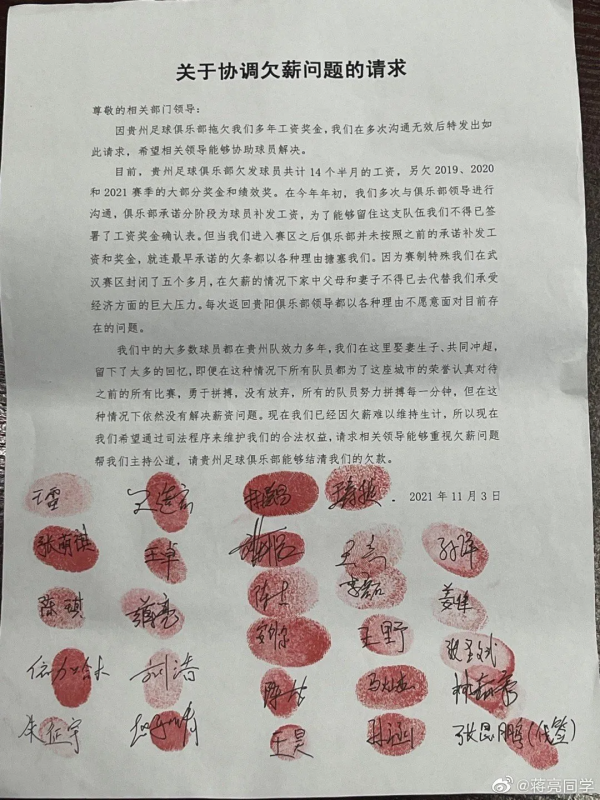 关于协调欠薪问题的请求
尊敬的相关部门领导：
因贵州足球俱乐部拖欠我们多年工资奖金，我们在多次沟通无效后特发出如
此请求，希望相关领导能够协助球员解决。
目前，贵州足球俱乐部欠发球员共计14个半月的工资，另欠2019、2020
和2021赛季的大部分奖金和绩效奖。在今年年初，我们多次与俱乐部领导进行
沟通，俱乐部承诺分阶段为球员补发工资，为了能够留住这支队伍我们不得已签
署了工资奖金确认表。但当我们进入赛区之后俱乐部并未按照之前的承诺补发工
资和奖金，就连最早承诺的欠条都以各种理由搪塞我们。因为赛制特殊我们在武
汉赛区封闭了五个多月，在欠薪的情况下家中父母和妻子不得已去代替我们承受
经济方面的巨大压力。每次返回贵阳俱乐部领导都以各种理由不愿意面对目前存
在的问题。
我们中的大多数球员都在贵州队效力多年，我们在这里娶妻生子、共同冲超，
留下了太多的回忆，即便在这种情况下所有队员都为了这座城市的荣誉认真对待
之前的所有比赛，勇于拼搏，没有放弃，所有的队员努力拼搏每一分钟，但在这
种情况下依然没有解决薪资问题。现在我们已经因欠薪难以维持生计，所以现在
我们希望通过司法程序来维护我们的合法权益，请求相关领导能够重视欠薪问题
帮我们主持公道，请贵州足球俱乐部能够结清我们的欠款。
2021年11月3日
张萌琪 王卓
陈琪 蒋亮
王野
刘涛
朱征宇 王昊 孙涵 张昆鹏(代签)
@蒋亮同学